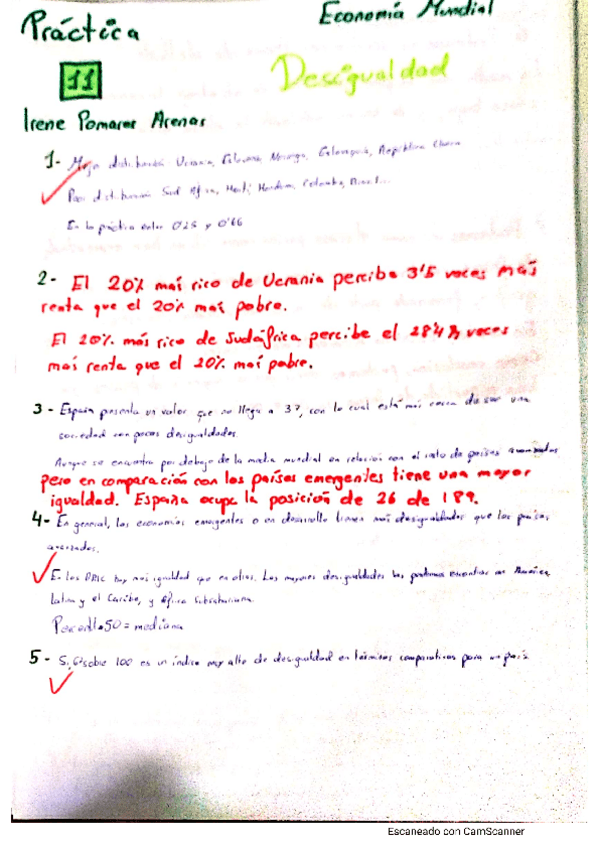 Práctica
Economía Mundial
11
Desigualdad
Irene Pomares Arenas
1- Mejor distribución Ucrania, Eslovenia, Noruega, Eslovaquia, República Checa
Peor distribución Sud África, Haití, Honduras, Colombia, Brasil...
En la práctica entre 0'25 y 0'66
2- El 20% más rico de Ucrania percibe 3'5 veces más
renta que el 20% más pobre.
El 20% más rico de Sudáfrica percibe el 28'4 veces
más renta que el 20% más pobre.
3 - España presenta un valor que no llega a 37, con lo cual está más cerca de ser una
sociedad con pocas desigualdades.
Aunque se encuentra por debajo de la media mundial en relación con el resto de países avanzados
pero en comparación con los países emergentes tiene una mayor
igualdad. España ocupa la posición de 26 de 189.
4- En general, las economías emergentes o en desarrollo tienen más desigualdades que los países
avanzados.
En los hay más igualdad que en otros. Las mayores desigualdades las podemos encontrar en América
Latina y el Caribe, y África Subsahariana.
Percentil 50 = mediana
5 - Sí, 63 sobre 100 es un índice muy alto de desigualdad en términos comparativos para un país
Escaneado con CamScanner